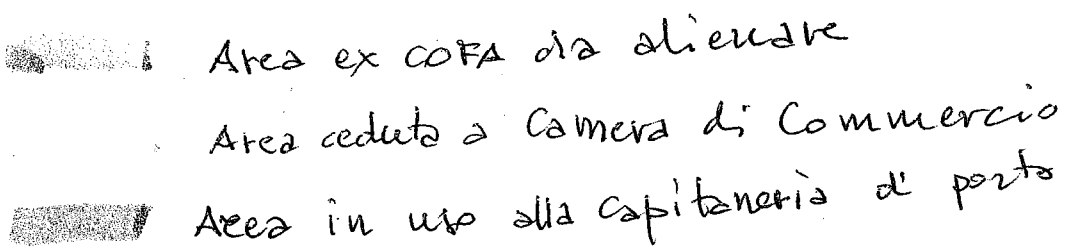 Area ex COFA da alienare
Area ceduta a Camera di Commercio
Area in uso alla Capitaneria d' porto